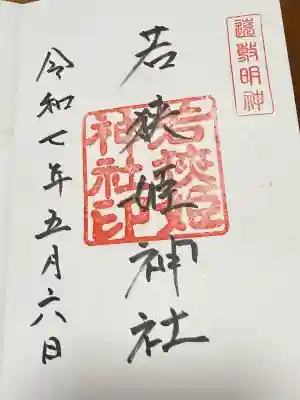 遠敷明神
若狭姫神社
若狭姫
神社印
令和七年五月六日